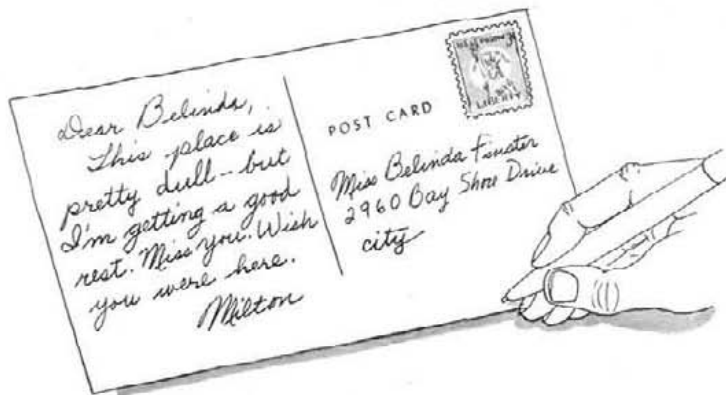 Dear Belinda,
This place is
pretty dull -- but
I'm getting a good
rest. Miss you. Wish
you were here.
Milton
POST CARD
LIBERTY
Miss Belinda Finster
2960 Bay Shore Drive
city